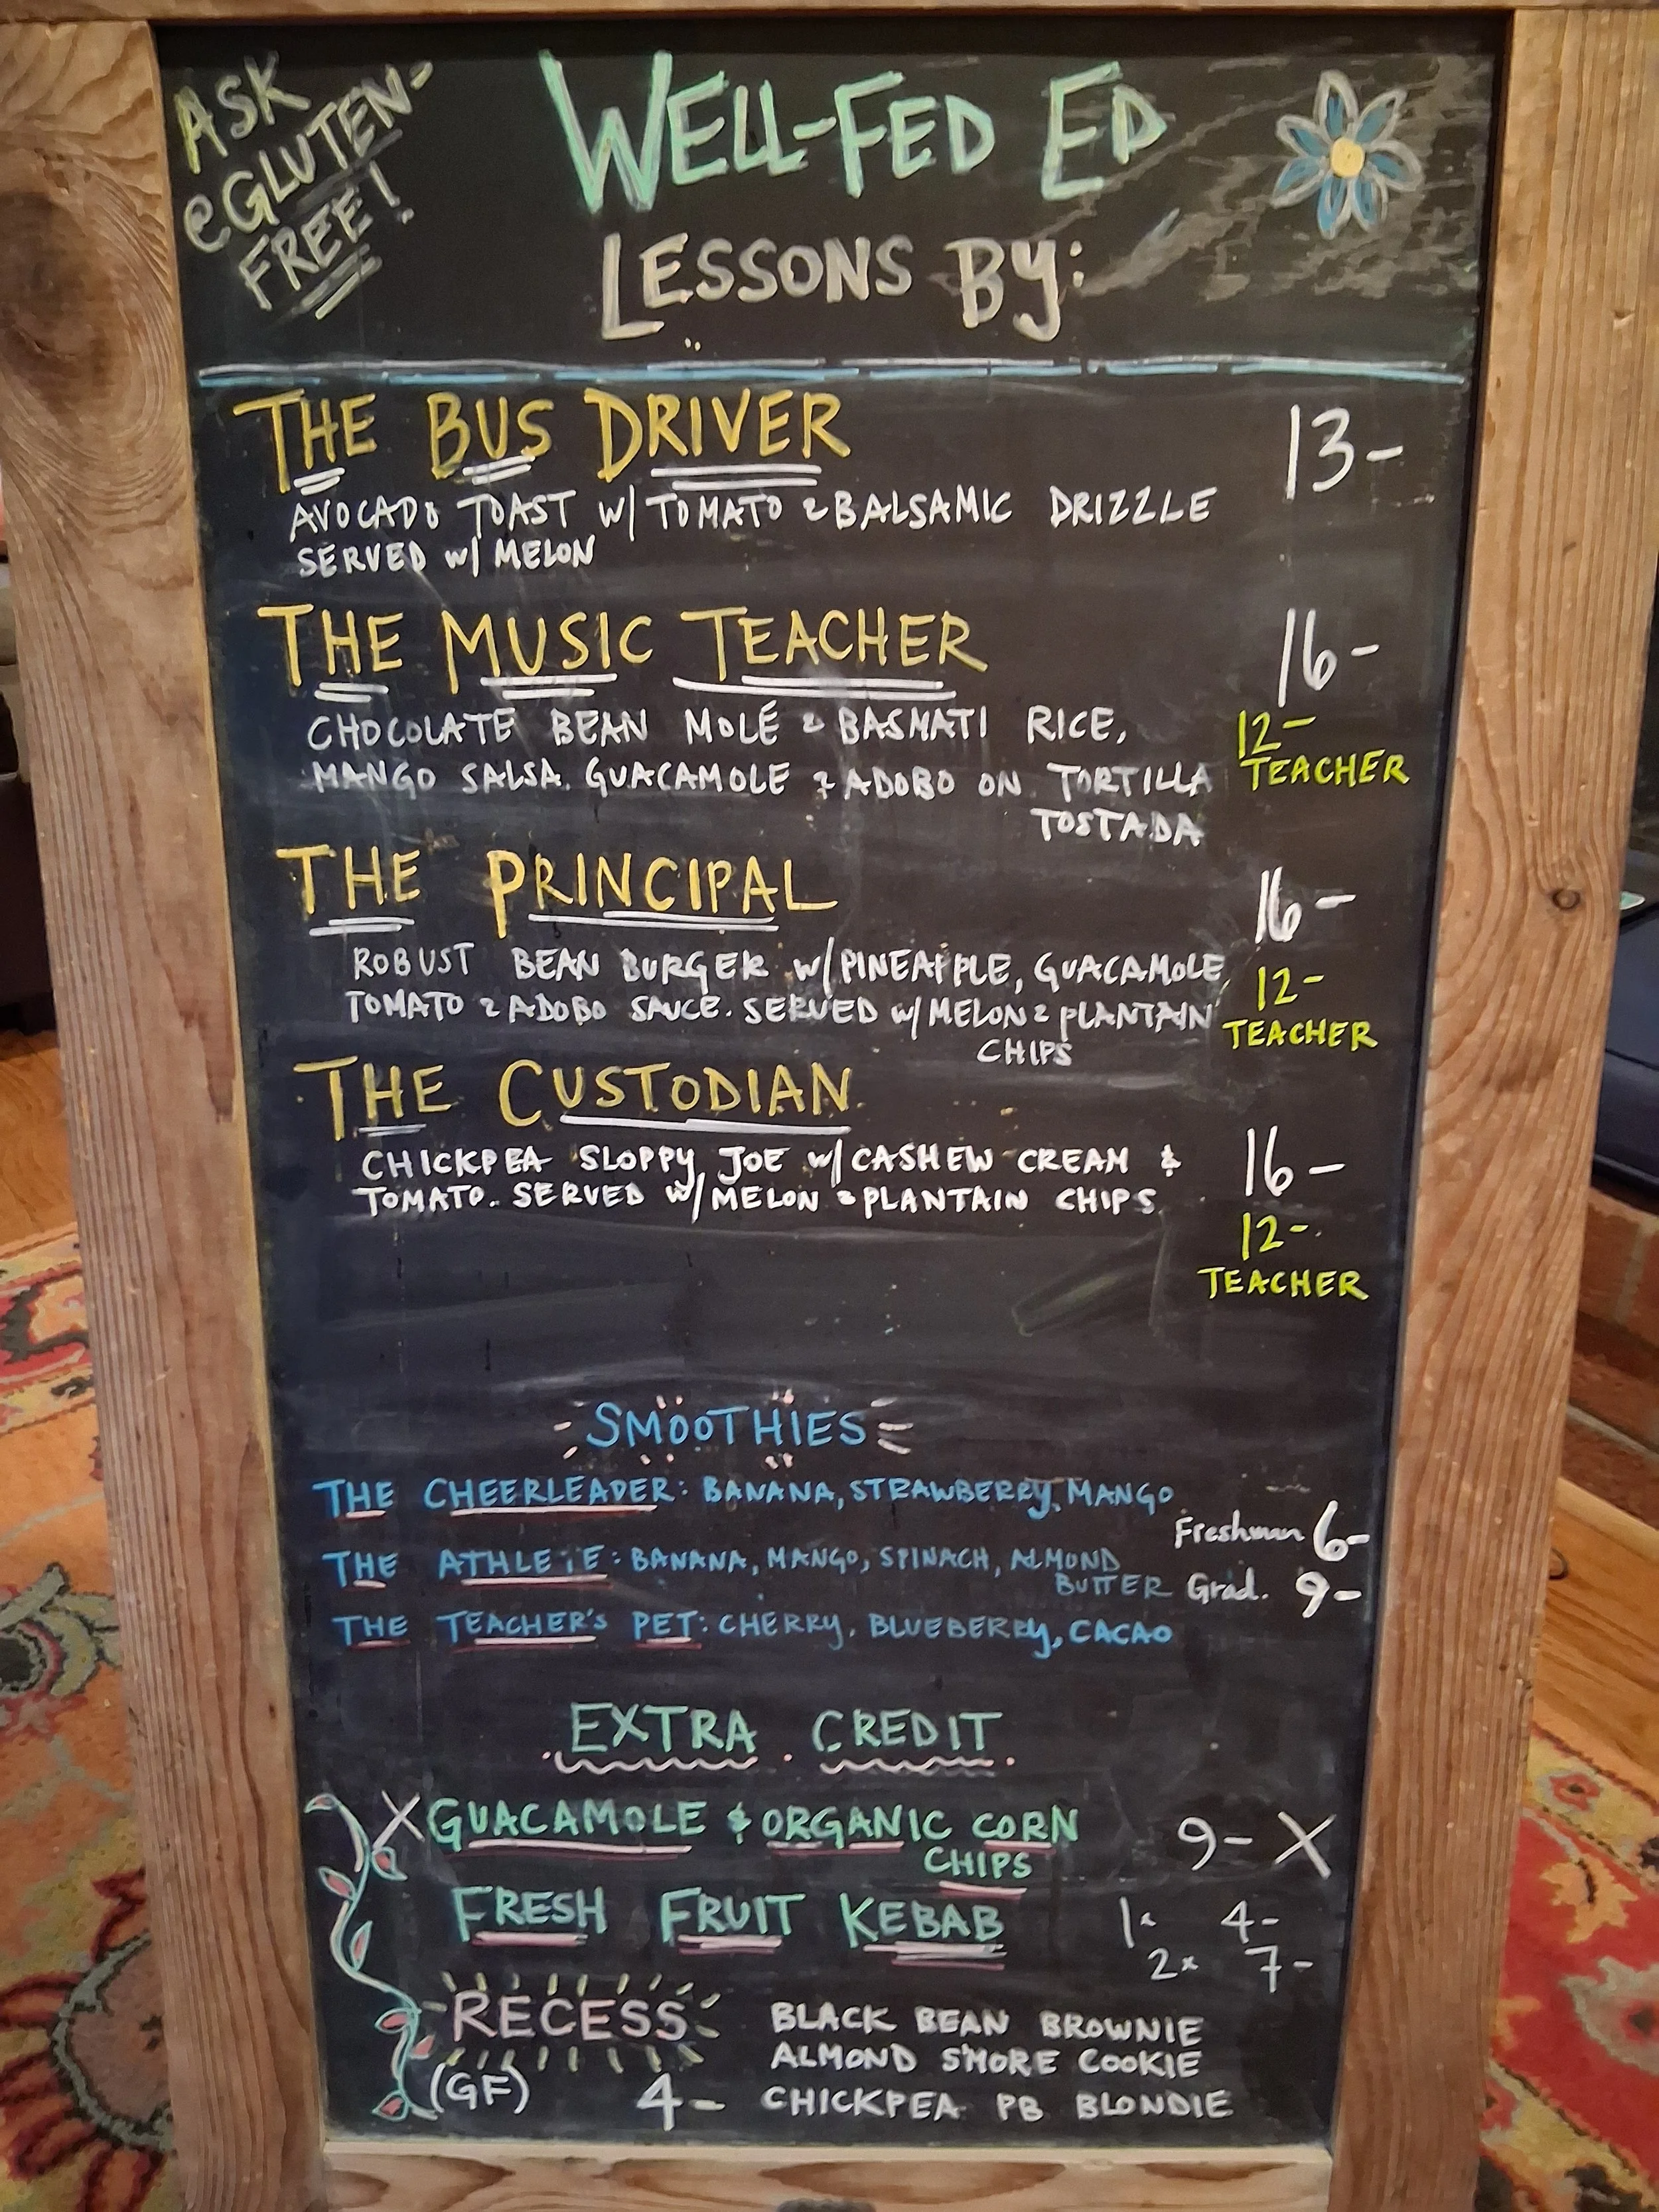 ASK
@GLUTEN-
FREE!
WELL-FED ED
LESSONS BY:
THE BUS DRIVER 13-
AVOCADO TOAST W/ TOMATO & BALSAMIC DRIZZLE
SERVED W/ MELON
THE MUSIC TEACHER 16-
CHOCOLATE BEAN MOLÉ & BASMATI RICE, 12-
MANGO SALSA. GUACAMOLE & ADOBO ON TORTILLA TEACHER
TOSTADA
THE PRINCIPAL 16-
ROBUST BEAN BURGER W/ PINEAPPLE, GUACAMOLE, 12-
TOMATO & ADOBO SAUCE. SERVED W/ MELON & PLANTAIN TEACHER
CHIPS
THE CUSTODIAN
CHICKPEA SLOPPY JOE W/ CASHEW CREAM & 16-
TOMATO. SERVED W/ MELON & PLANTAIN CHIPS
12-
TEACHER
SMOOTHIES
THE CHEERLEADER: BANANA, STRAWBERRY, MANGO
Freshman 6-
THE ATHLETE: BANANA, MANGO, SPINACH, ALMOND
BUTTER Grad. 9-
THE TEACHER'S PET: CHERRY, BLUEBERRY, CACAO
EXTRA CREDIT
X GUACAMOLE & ORGANIC CORN 9- X
CHIPS
FRESH FRUIT KEBAB 1x 4-
2x 7-
RECESS BLACK BEAN BROWNIE
ALMOND S'MORE COOKIE
(GF) 4- CHICKPEA PB BLONDIE